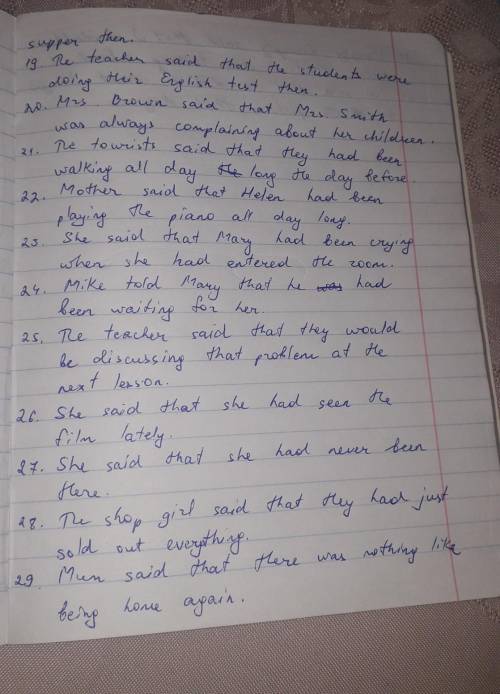 supper then.
19. The teacher said that the students were
doing their English test then.
20. Mrs Brown said that Mrs. Smith
was always complaining about her children.
21. The tourists said that they had been
walking all day the long the day before.
22. Mother said that Helen had been
playing the piano all day long.
23. She said that Mary had been crying
when she had entered the room.
24. Mike told Mary that he was had
been waiting for her.
25. The teacher said that they would
be discussing that problem at the
next lesson.
26. She said that she had seen the
film lately.
27. She said that she had never been
there.
28. The shop girl said that they had just
sold out everything.
29. Mum said that there was nothing like
being home again.